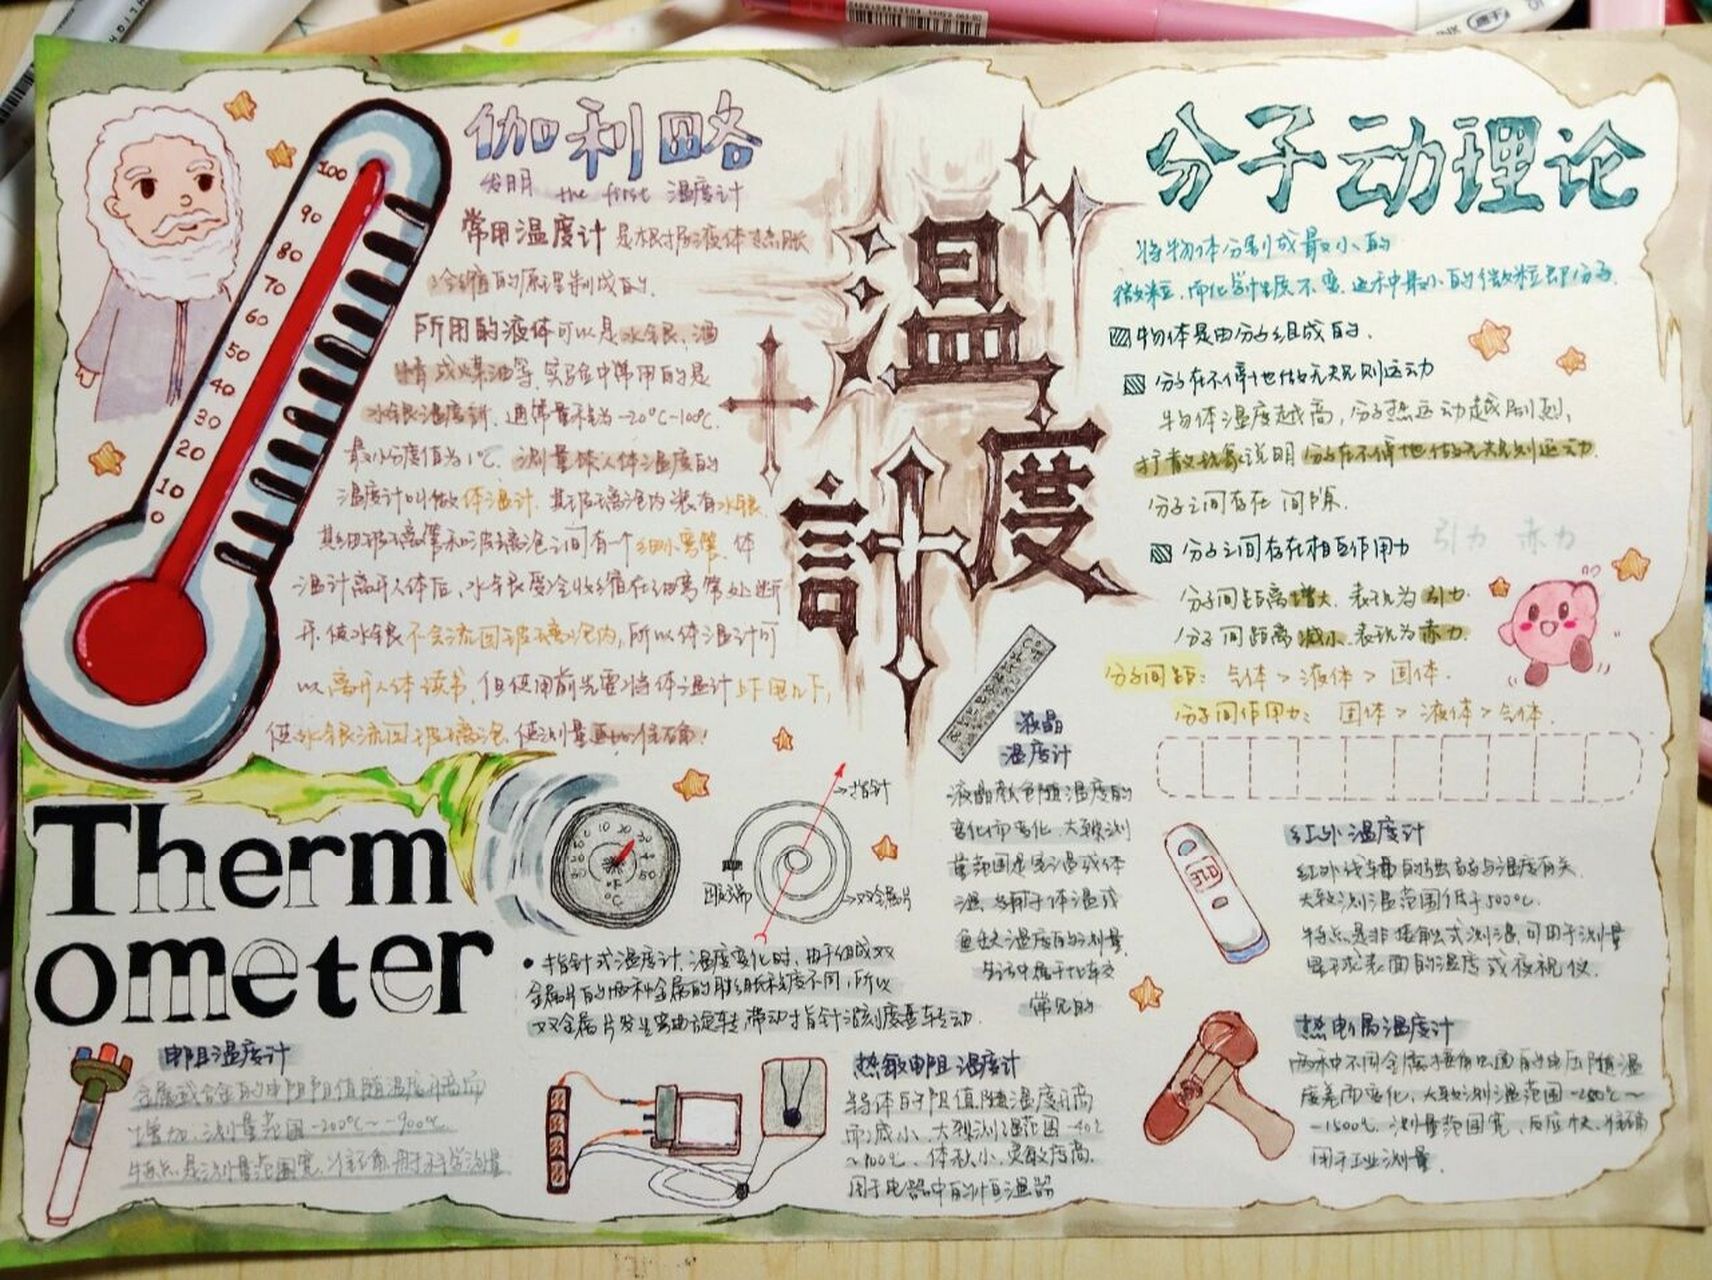 伽利略
发明 the first 温度计
常用温度计 是根据液体热胀
冷缩的原理制成的.
所用的液体可以是水银、酒
精或煤油等.实验中常用的是
水银温度計.通常量程为-20°C~100°C.
最小分度值为1℃.测量体人体温度的
温度计叫做体温计.其玻璃泡内装有水银.
其细玻璃管和玻璃泡之间有一个细小弯管.体
温计离开人体后,水银受冷收缩在细弯管处断
开.使水银不会流回玻璃泡内,所以体温计可
以离开人体读书.但使用前先要将体温计上下甩几下,
使水银流回玻璃泡,使测量更加准确!
100
90
80
70
60
50
40
30
20
10
0
温
度
計
分子动理论
将物体分割成最小的
微粒,而化学性质不变.这种最小的微粒即分子.
物体是由分子组成的.
分子在不停地做无规则运动
物体温度越高,分子热运动越剧烈,
扩散现象说明分子在不停地做无规则运动.
分子之间存在间隙.
分子之间存在相互作用力 引力 赤力
分子间距离增大.表现为引力.
分子间距离减小.表现为赤力.
分子间距: 气体>液体>固体.
分子间作用力: 固体>液体>气体.
Therm
ometer
指针
固定端
双金属片
°F
°C
•指针式温度计.温度变化时,由于组成双
金属片的两种金属的膨胀程度不同,所以
双金属片发生弯曲旋转,带动指针沿刻度盘转动.
液晶
温度计
液晶颜色随温度的
变化而变化.大致测
量范围是室温或体
温.常用于体温或
鱼缸温度的测量.
常见的
红外温度计
红外线辐射的强弱与温度有关.
大致测温范围低于500°C.
特点是非接触式测温.可用于测量
显示或表面的温度或夜视仪.
电阻温度计
金属或合金的电阻阻值随温度升高而
增加.测量范围-200°C~-900°C.
特点是测量范围宽.准确.用于科学测量
热敏电阻温度计
导体的阻值随温度升高
而减小.大致测温范围-40℃
~100℃.体积小.灵敏度高.
用于电器中的恒温器
热电偶温度计
两种不同金属接触点间的电压随温
度差而变化.大致测温范围-250°C~
-1500℃.测量范围宽、反应快、准确
用于工业测量.